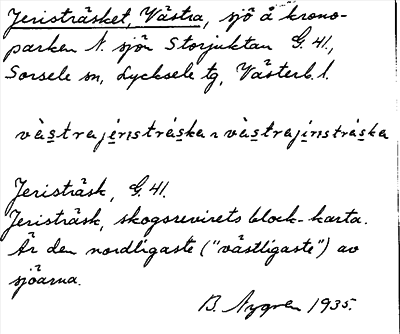 Jeristräsket, Västra, sjö å krono-
parken N. sjön Storjuktan G. 41.,
Sorsele sn, Lycksele tg, Västerb. l.
vä̀stra jèristráska ~ vä̀stra jìristráska
Jeristräsk, G. 41.
Jeristräsk, skogsrevirets block-karta.
Är den nordligaste ("västligaste") av
sjöarna.
B. Nygren 1935.